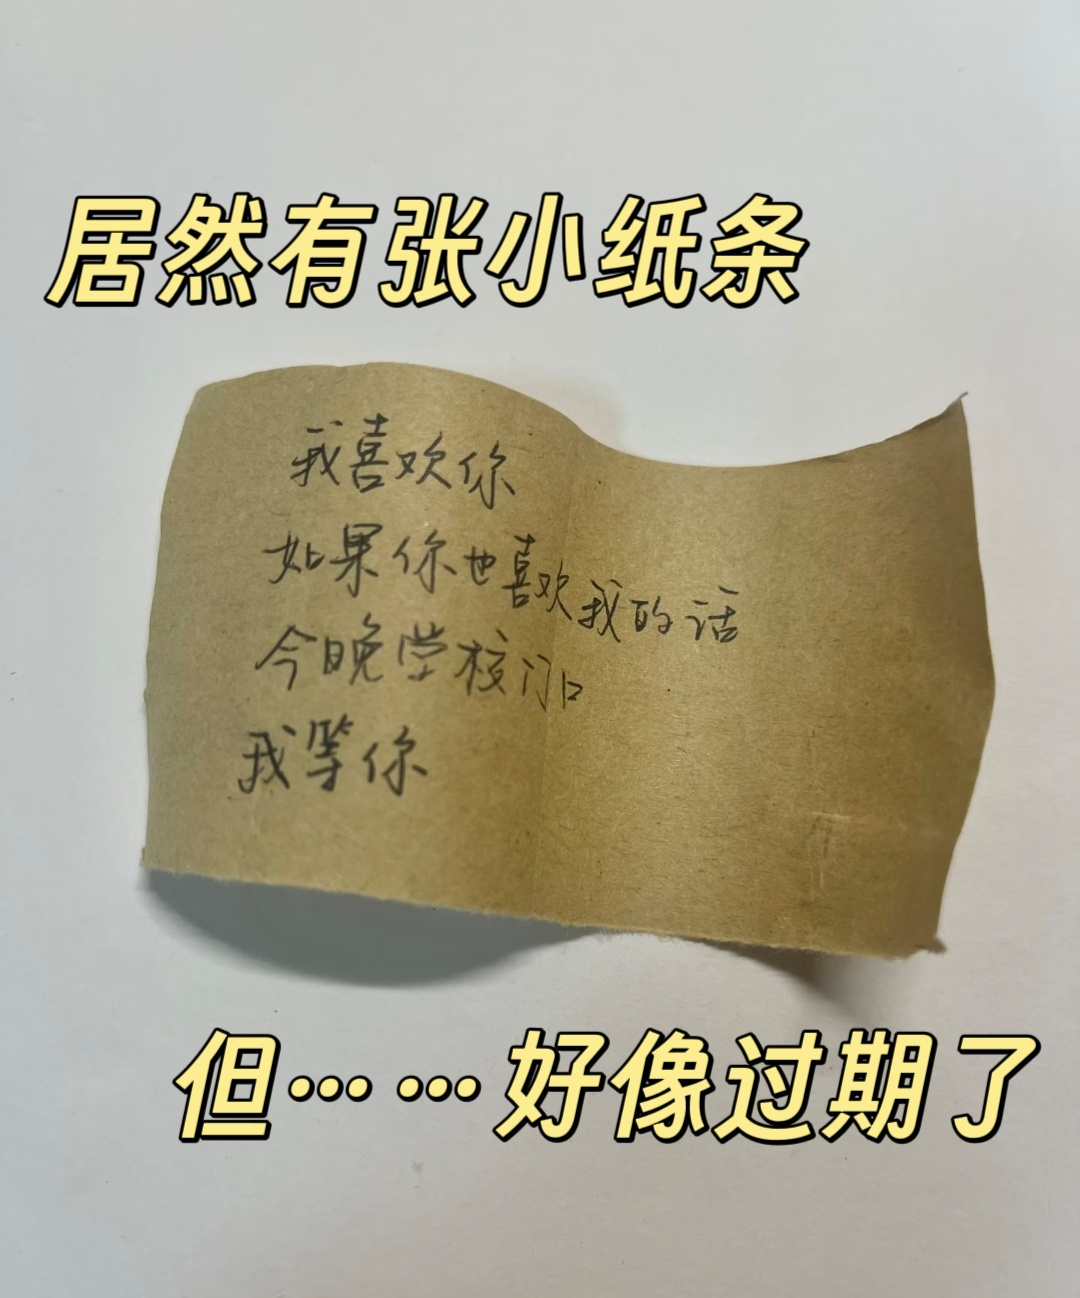 居然有张小纸条
我喜欢你
如果你也喜欢我的话
今晚学校门口
我等你
但……好像过期了